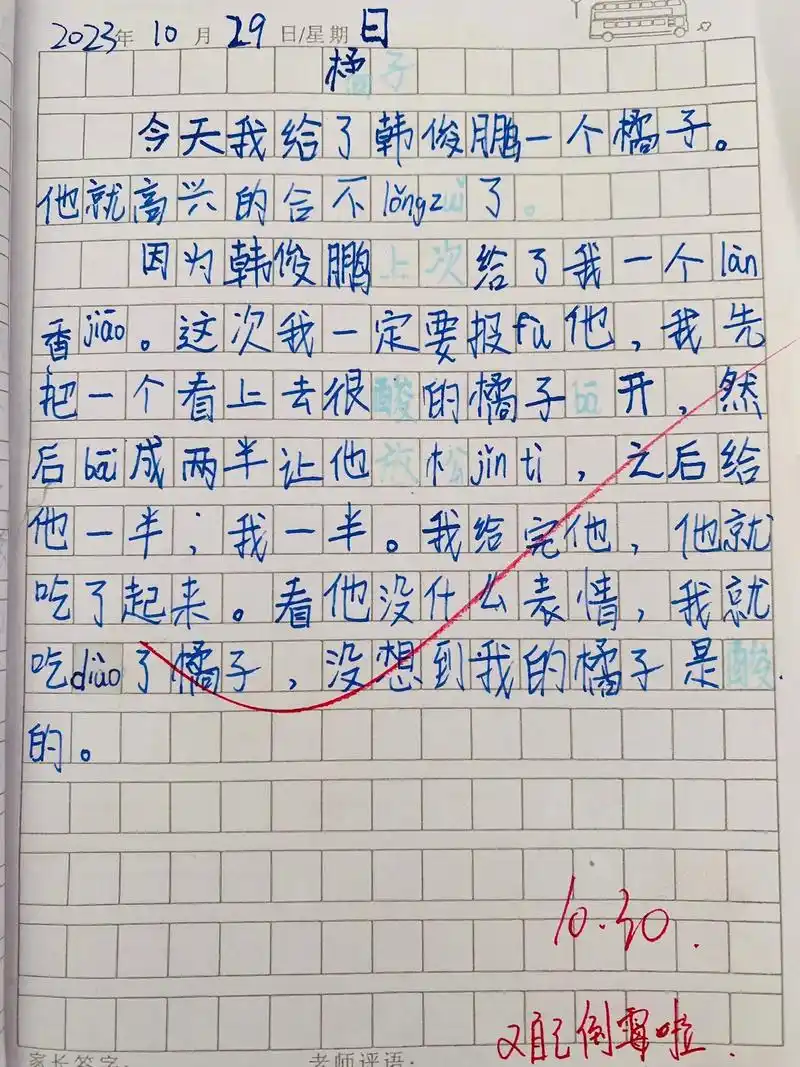 2023年 10月 29日/星期 日
橘子
今天我给了韩俊鹏一个橘子。
他就高兴的合不lǒngzuǐ了。
因为韩俊鹏上次给了我一个làn
香jiāo。这次我一定要投fu他,我先
把一个看上去很酸的橘子bāi开,然
后bāi成两半让他放松jǐnti,之后给
他一半;我一半。我给完他,他就
吃了起来。看他没什么表情,我就
吃diào了橘子,没想到我的橘子是酸
的。
10.30.
又自己倒霉啦.
家长签字: 老师评语: